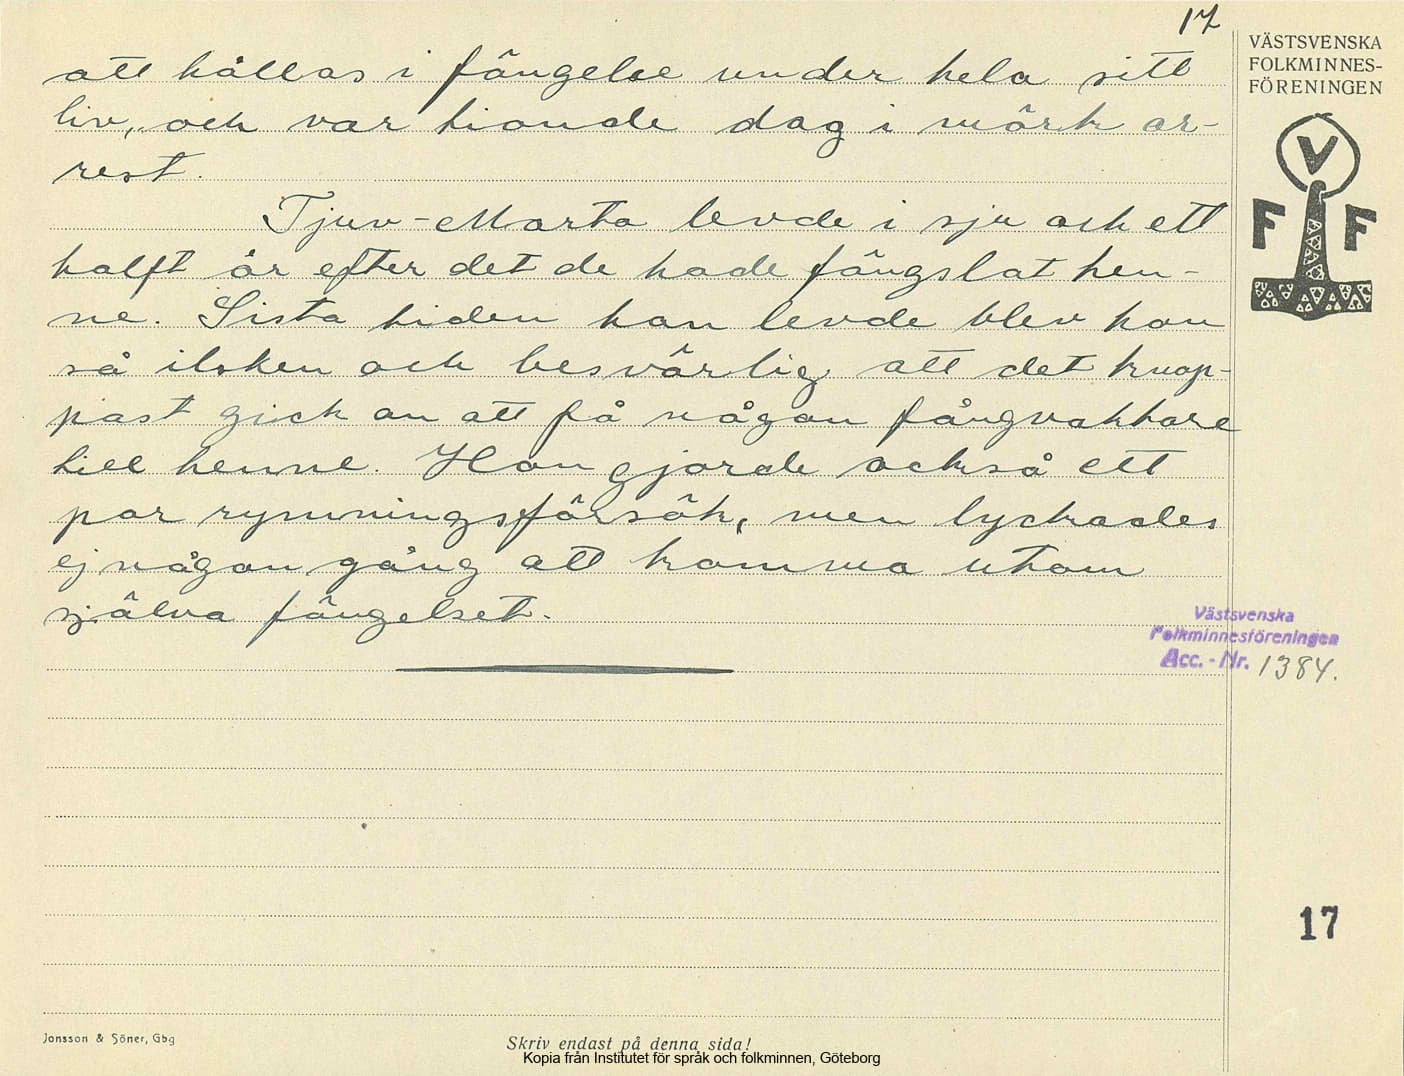 17
VÄSTSVENSKA
FOLKMINNES-
FÖRENINGEN
V
F F
att hållas i fängelse under hela sitt
liv, och var tionde dag i mörk ar-
rest.
Tjuv-Marta levde i sju och ett
halft år efter det de hade fängslat hen-
ne. Sista tiden hon levde blev hon
så ilsken och besvärlig att det knap-
past gick an att få någon fångvaktare
till henne. Hon gjorde också ett
par rymningsförsök, men lyckades
ej någon gång att komma utom
själva fängelset.
Västsvenska
Folkminnesföreningen
Acc. - Nr. 1384.
17
Jonsson & Söner, Gbg
Skriv endast på denna sida!
Kopia från Institutet för språk och folkminnen, Göteborg